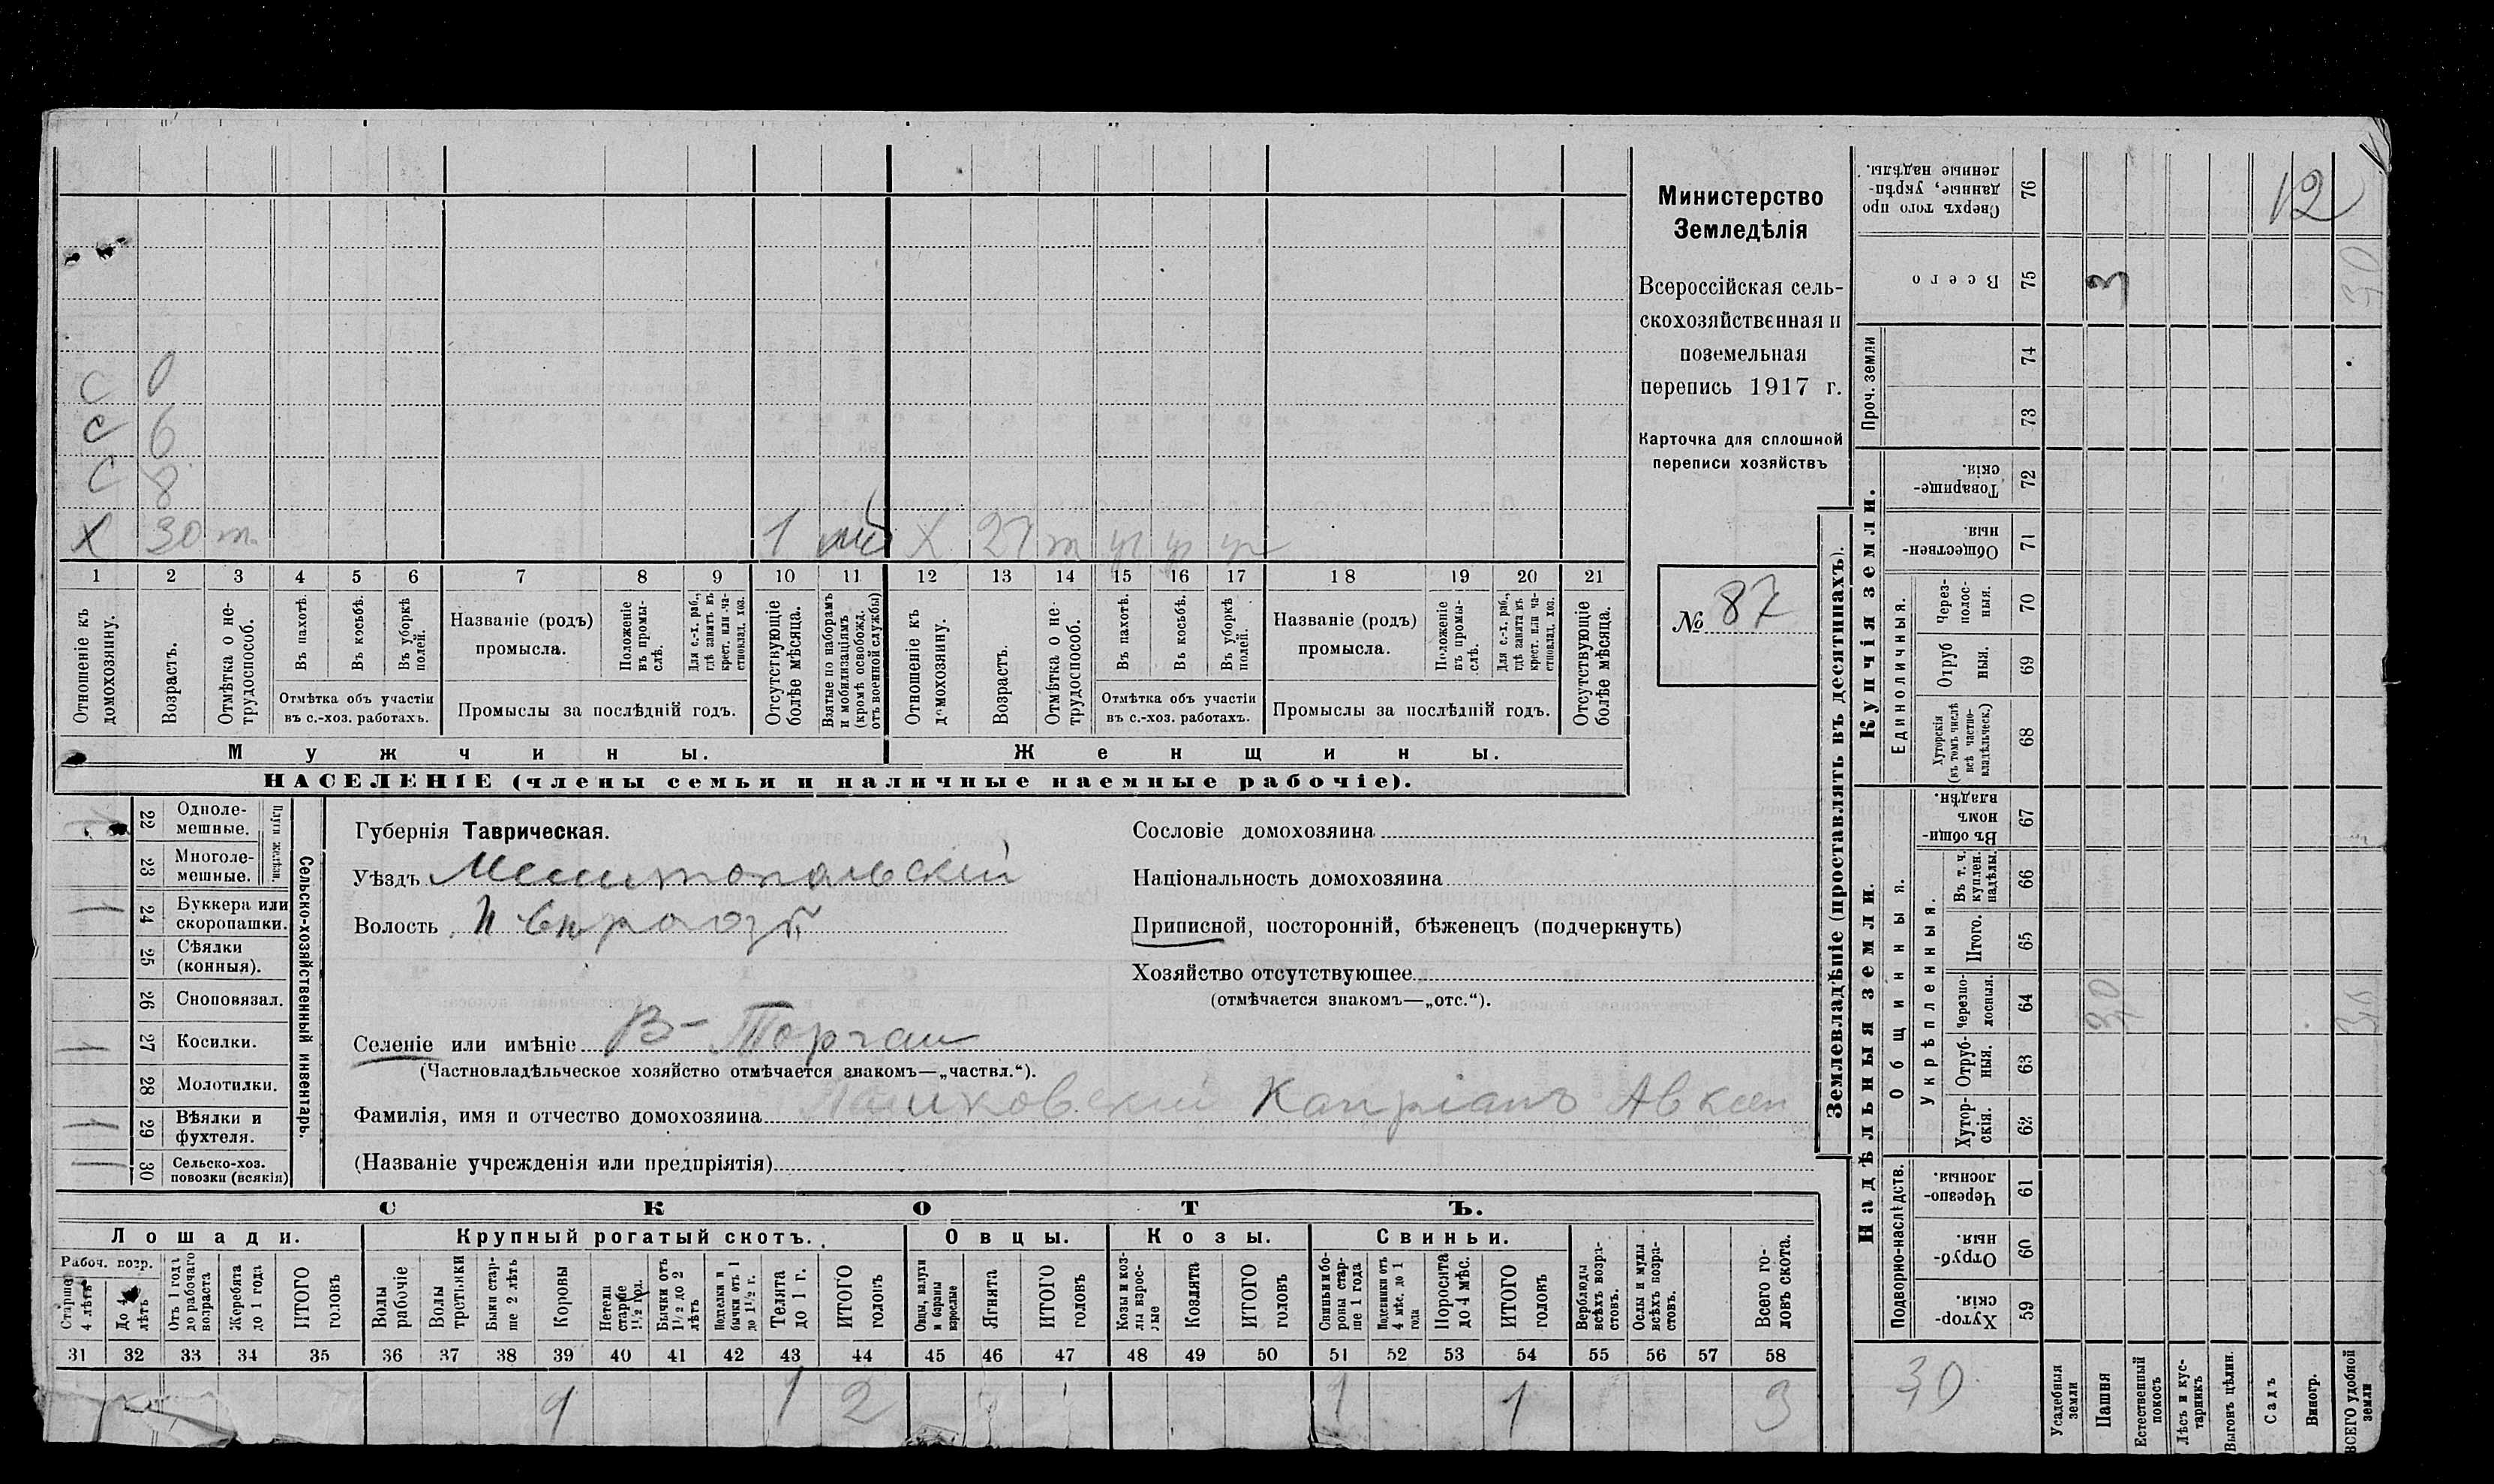 12
С 0
С 6
С 8
Х 30 т. 1 Х 27 т
1 2 3 4 5 6 7 8 9 10 11 12 13 14 15 16 17 18 19 20 21
Отношеніе къ домохозяину.
Возрастъ.
Отмѣтка о не-трудоспособ.
Въ пахотѣ.
Въ косьбѣ.
Въ уборкѣ полей.
Отмѣтка объ участіи въ с.-хоз. работахъ.
Названіе (родъ) промысла.
Положеніе въ промы-слѣ.
Для с.-х. раб., гдѣ занятъ въ крест. или ча-стновлад. хоз.
Промыслы за послѣдній годъ.
Отсутствующіе болѣе мѣсяца.
Взятые по наборамъ и мобилизаціямъ (кромѣ освобожд. отъ военной службы)
Отношеніе къ домохозяину.
Возрастъ.
Отмѣтка о не-трудоспособ.
Въ пахотѣ.
Въ косьбѣ.
Въ уборкѣ полей.
Отмѣтка объ участіи въ с.-хоз. работахъ.
Названіе (родъ) промысла.
Положеніе въ промы-слѣ.
Для с.-х. раб., гдѣ занята въ крест. или ча-стновлад. хоз.
Промыслы за послѣдній годъ.
Отсутствующіе болѣе мѣсяца.
Мужчины.
Женщины.
НАСЕЛЕНІЕ (члены семьи и наличные наемные рабочіе).
Министерство
Земледѣлія
Всероссійская сель-
скохозяйственная и
поземельная
перепись 1917 г.
Карточка для сплошной
переписи хозяйствъ
№ 87
Сельско-хозяйственный инвентарь.
Плуги желѣзн.
22 Одноле-мешные.
23 Многоле-мешные.
24 Буккера или скоропашки. 1
25 Сѣялки (конныя).
26 Сноповязал.
27 Косилки. 1
28 Молотилки.
29 Вѣялки и фухтеля. 1
30 Сельско-хоз. повозки (всякія) 1
Губернія Таврическая.
Уѣздъ Мелитопольскій
Волость
Селеніе или имѣніе В-Торгаи
(Частновладѣльческое хозяйство отмѣчается знакомъ—„частвл.“).
Фамилія, имя и отчество домохозяина Капріанъ Авксен
(Названіе учрежденія или предпріятія)
Сословіе домохозяина
Національность домохозяина
Приписной, посторонній, бѣженецъ (подчеркнуть)
Хозяйство отсутствующее
(отмѣчается знакомъ—„отс.“).
СКОТЪ.
Лошади. Крупный рогатый скотъ. Овцы. Козы. Свиньи.
Рабоч. возр.
Старше 4 лѣтъ
До 4 лѣтъ
Отъ 1 года до рабочаго возраста
Жеребята до 1 года
ИТОГО головъ
Волы рабочіе
Волы третьяки
Быки стар-ше 2 лѣтъ
Коровы
Нетели старше 1½ год.
Бычки отъ 1½ до 2 лѣтъ
Подтелки и бычки отъ 1 до 1½ г.
Телята до 1 г.
ИТОГО головъ
Овцы, валухи и бараны взрослые
Ягнята
ИТОГО головъ
Козы и коз-лы взрос-лые
Козлята
ИТОГО головъ
Свиньи и бо-ровы стар-ше 1 года
Подсвинки отъ 4 мѣс. до 1 года
Поросята до 4 мѣс.
ИТОГО головъ
Верблюды всѣхъ возра-стовъ.
Ослы и мулы всѣхъ возра-стовъ.
Всего го-ловъ скота.
31 32 33 34 35 36 37 38 39 40 41 42 43 44 45 46 47 48 49 50 51 52 53 54 55 56 57 58
1 1 2 1 1 3
Землевладѣніе (проставлять въ десятинахъ).
Купчія земли.
Надѣльныя земли.
76 Сверхъ того про данные, укрѣп-ленные надѣлы.
75 Всего 3 30
Проч. земли
74
73
72 Товарище-скія.
71 Обществен-ныя.
Единоличныя.
70 Через-полос-ныя.
69 Отруб ныя.
68 Хуторскія (въ томъ числѣ всѣ частно-владѣльческ.)
Общинныя.
67 Въ общин-номъ владѣн.
Укрѣпленныя.
66 Въ т. ч. куплен. надѣлы.
65 Итого.
64 Черезпо-лосныя. 30 30
63 Отруб-ныя.
62 Хутор-скія.
Подворно-наслѣдств.
61 Черезпо-лосныя.
60 Отруб-ныя.
59 Хутор-скія.
30
Усадебныя земли
Пашня
Естественный покосъ
Лѣсъ и кус-тарникъ
Выгонъ цѣлин.
Садъ
Виногр.
ВСЕГО удобной земли